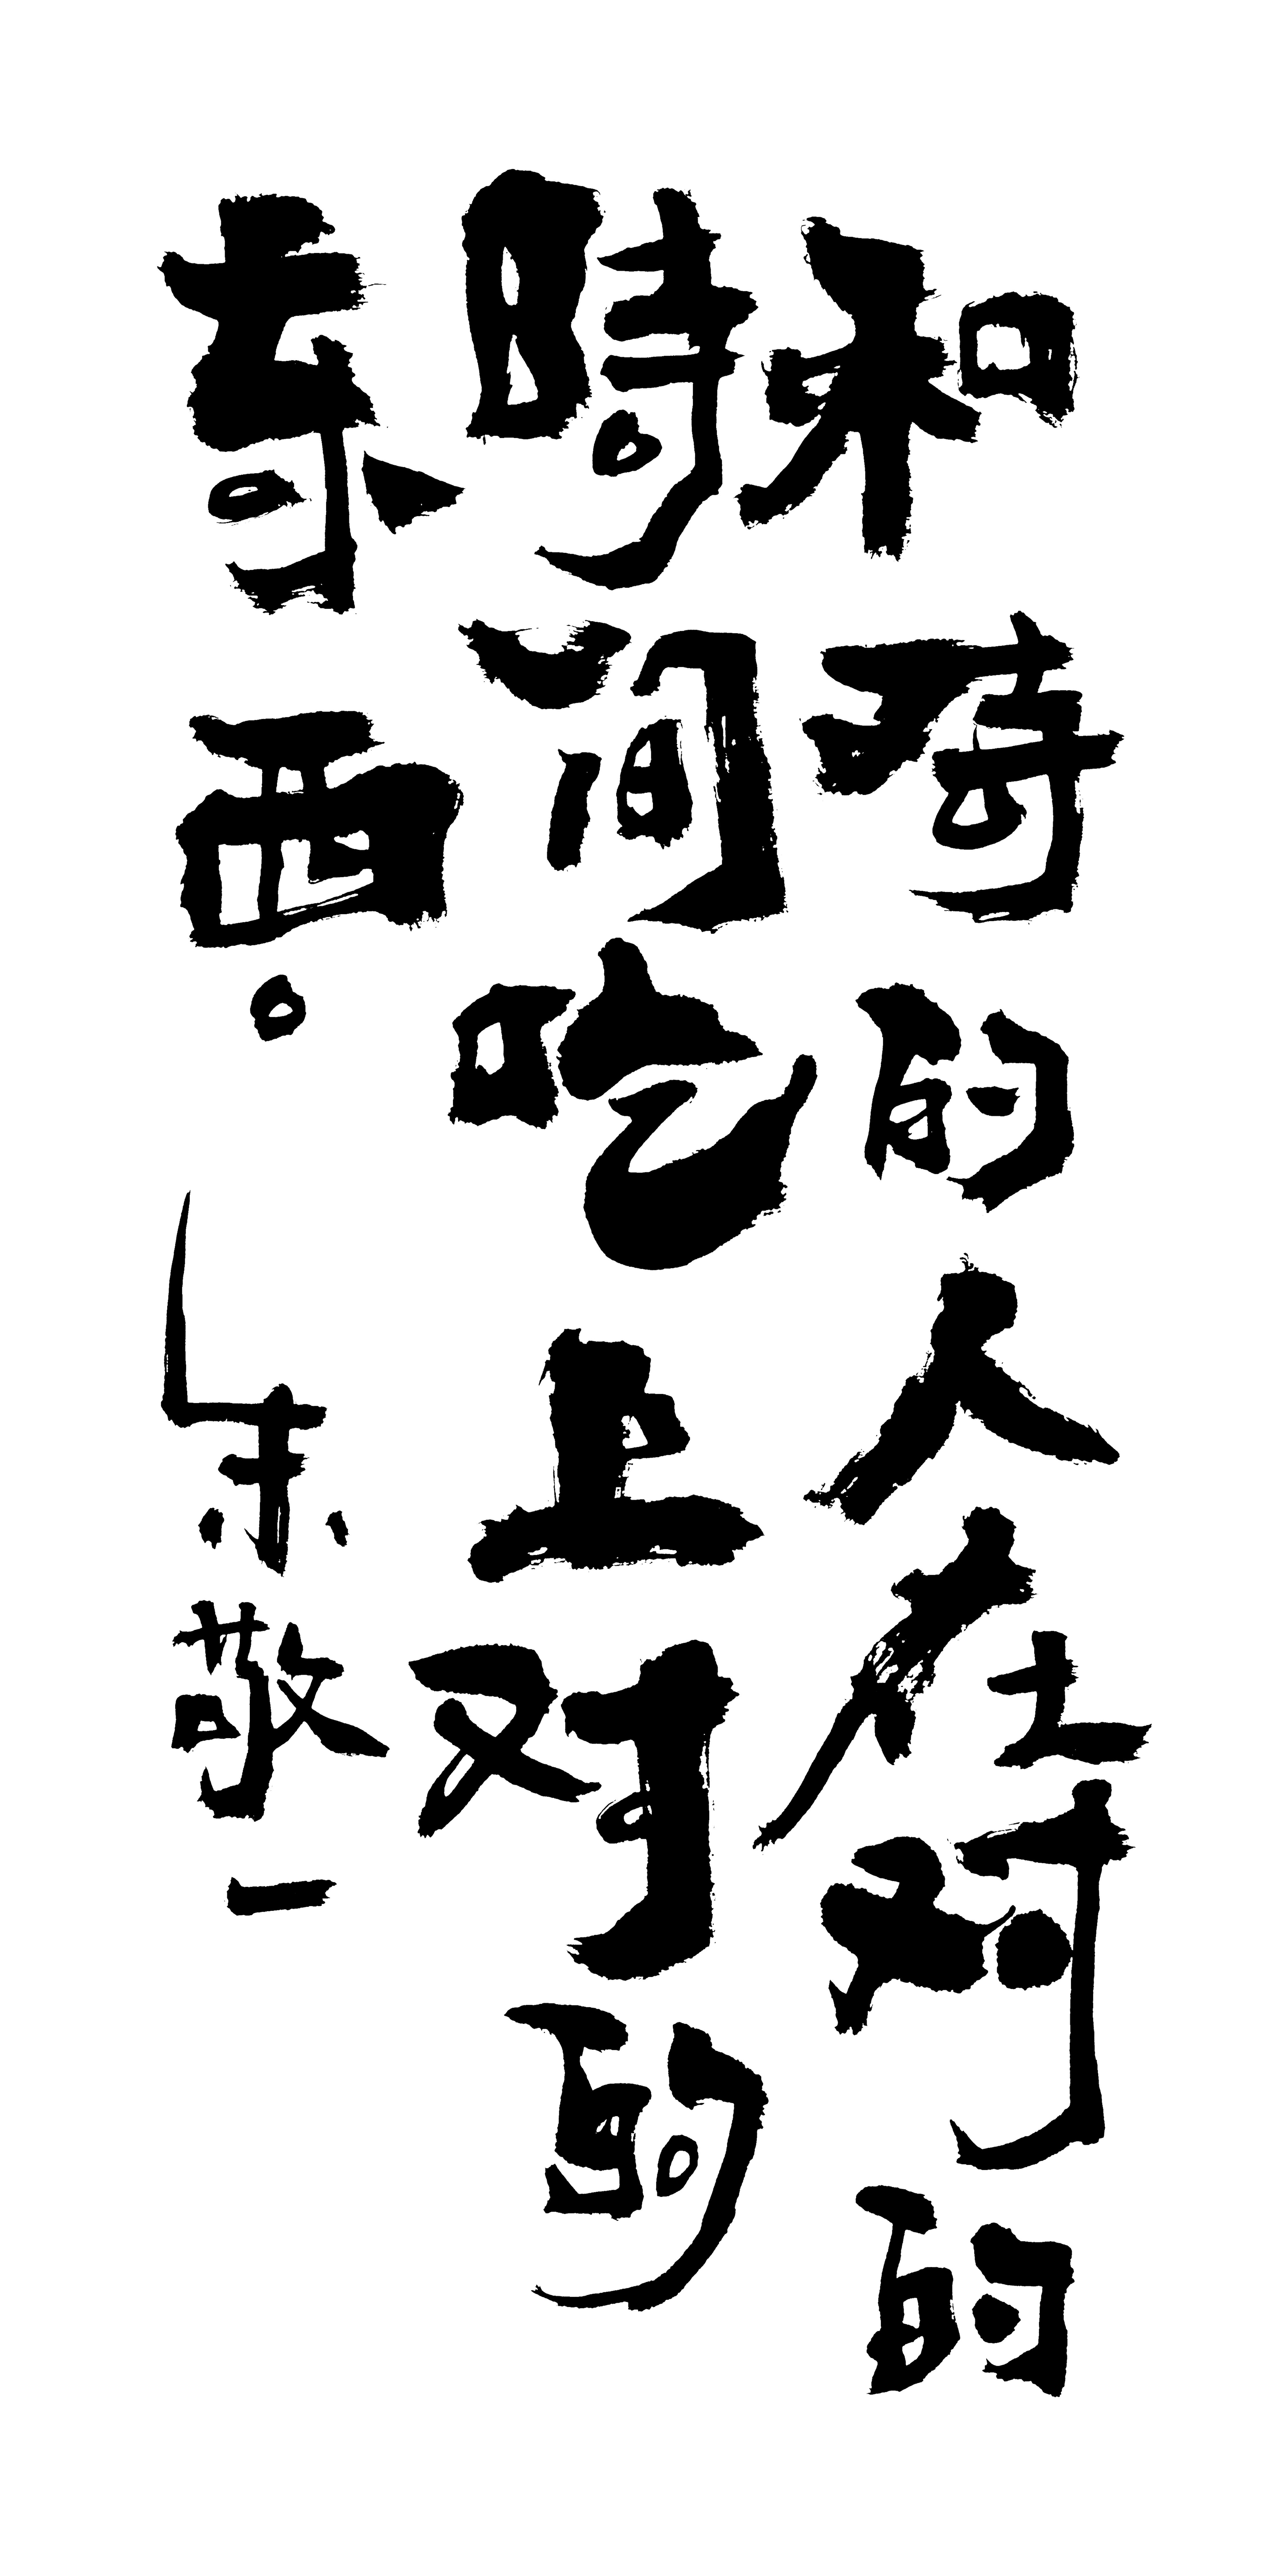 和对的人在对的
時间吃上对的
东西。朱敬一